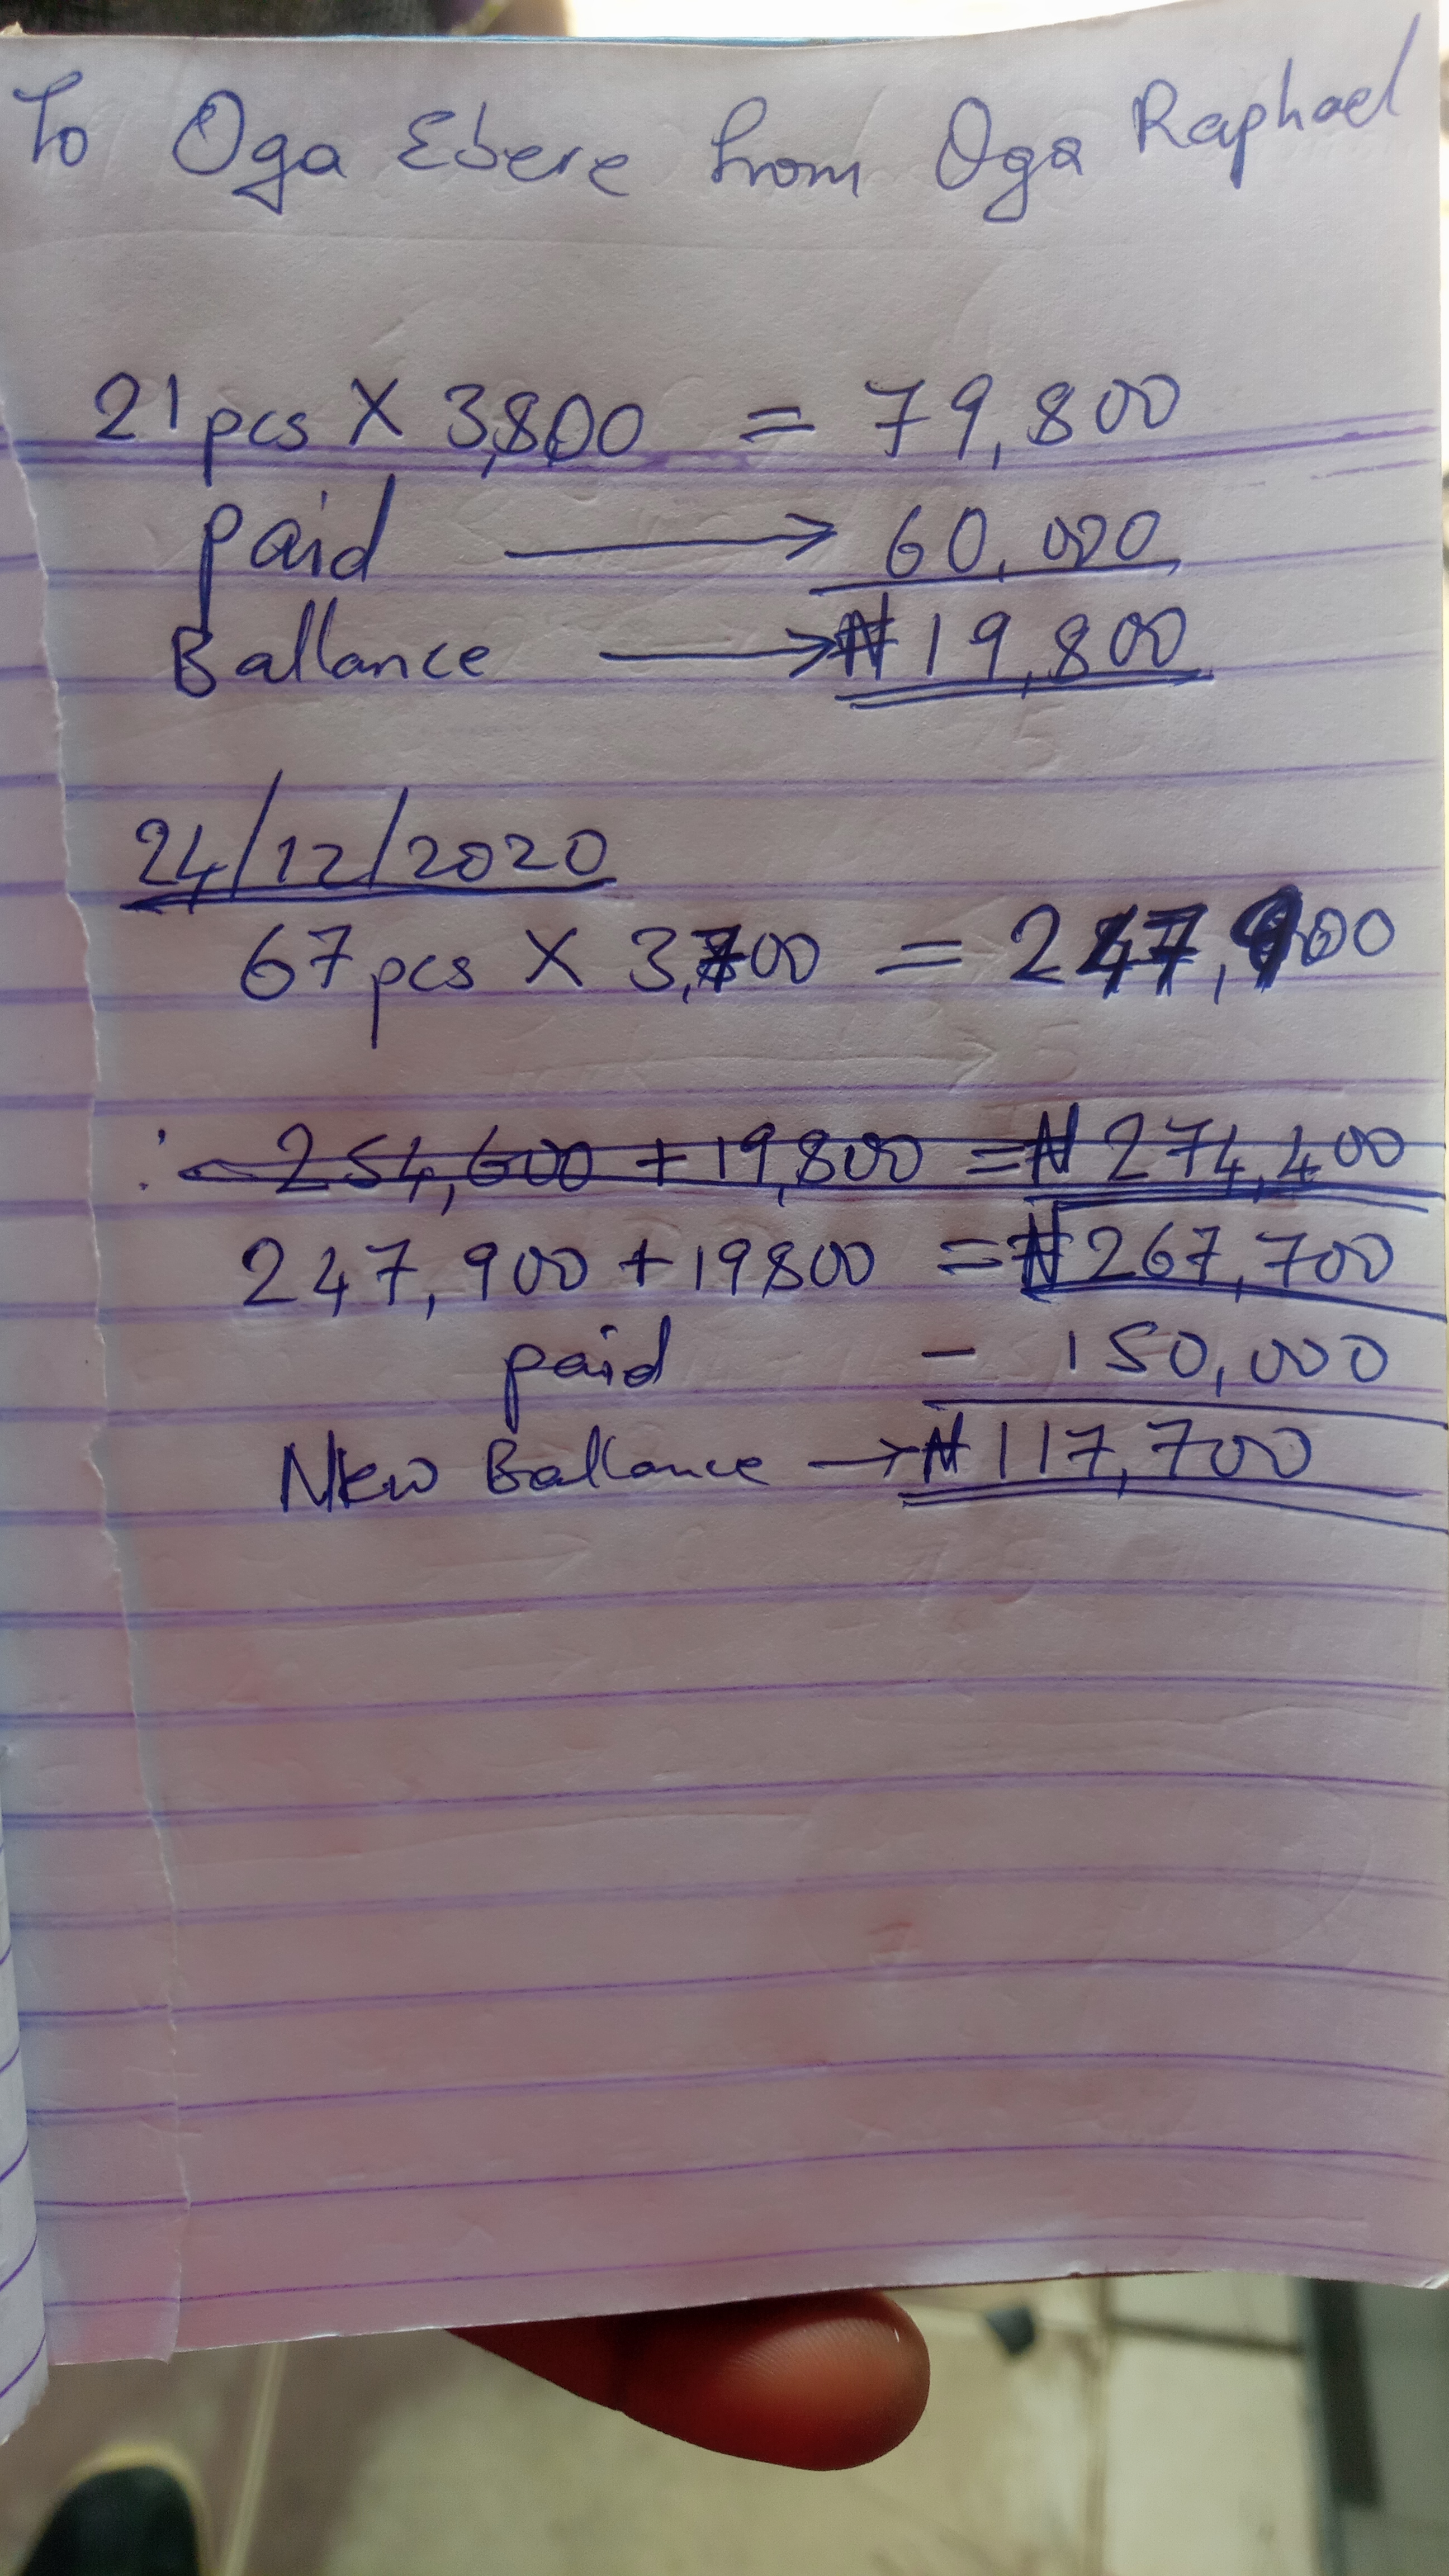 To Oga Ebere from Oga Raphael
21 pcs X 3,800 = 79,800
paid → 60,000
Ballance → ₦19,800
24/12/2020
67 pcs X 3,700 = 247,900
∴ 254,600 + 19,800 = ₦274,400
247,900 + 19800 = ₦267,700
paid - 150,000
New Ballance → ₦117,700